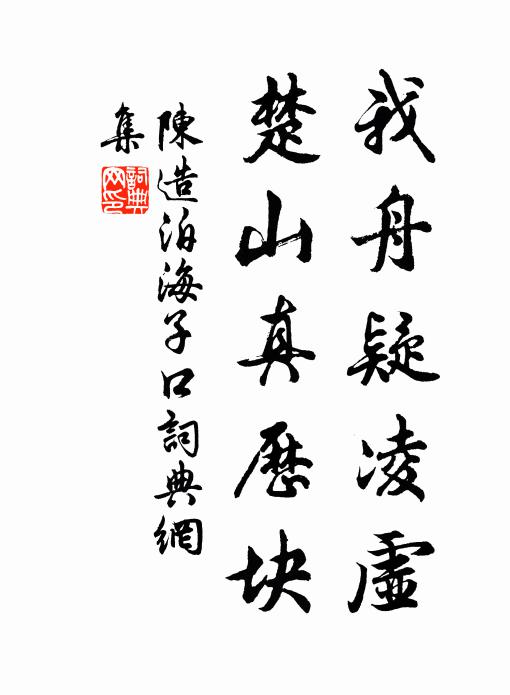 我舟疑凌虛
楚山真歷块
陳造泊海子口詞典網
集
詞典
网印